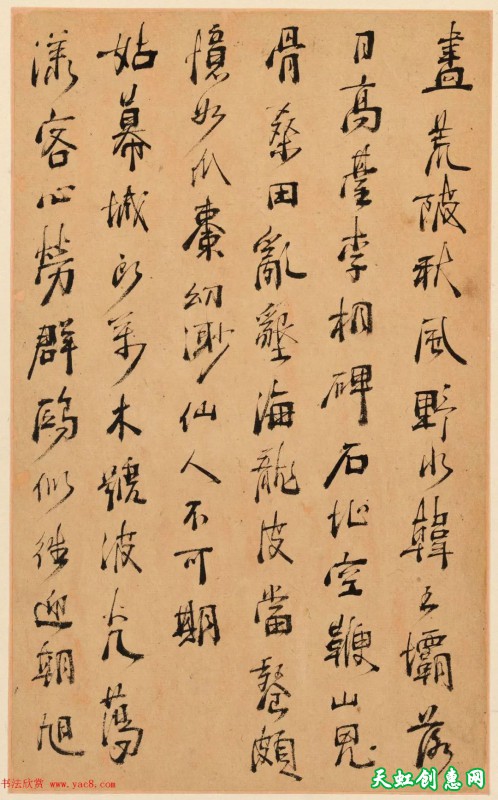 盡荒陂秋風野水韓王壩落
日高臺李相碑石城空鞭山鬼
骨桑田亂壟海龍皮當發頗
憶如瓜棗幻渺仙人不可期
姑幕城邊萬木號波光蕩
漾客心勞群鷗似往迎朝旭
书法欣赏 www.yac8.com
天虹创意网